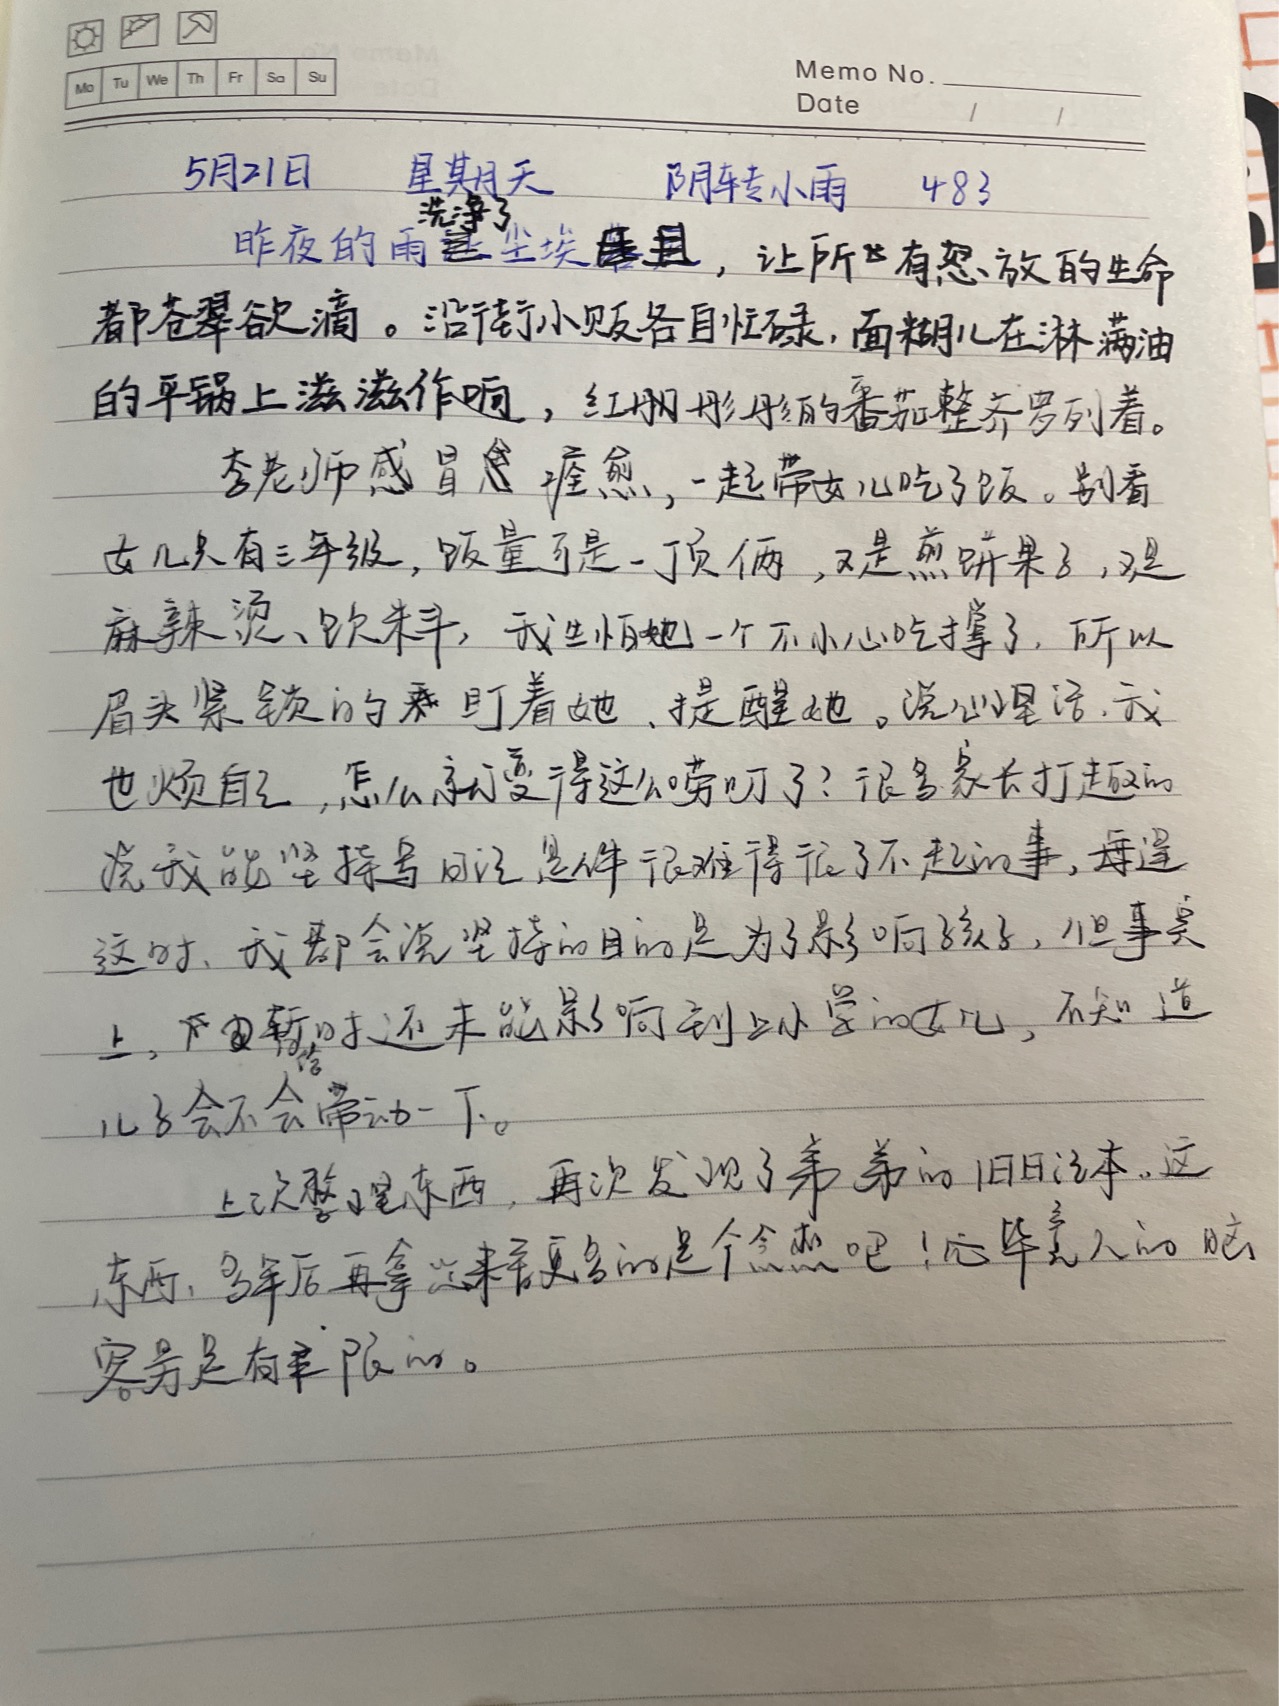 Mo Tu We Th Fr Sa Su
Memo No.
Date / /
5月21日 星期天 阴转小雨 483
昨夜的雨洗净了尘埃，让所有怒放的生命
都苍翠欲滴。沿街小贩各自忙碌，面糊儿在淋满油
的平锅上滋滋作响，红彤彤的番茄整齐罗列着。
李老师感冒痊愈，一起带女儿吃了饭。别看
女儿只有三年级，饭量可是一顶俩，又是煎饼果子，又是
麻辣烫、饮料，我生怕她一个不小心吃撑了，所以
眉头紧锁的盯着她、提醒她。说心里话，我
也烦自己，怎么就变得这么唠叨了？很多家长打趣的
说我能坚持写日记是件很难得很了不起的事，每逢
这时、我都会说坚持的目的是为了影响孩子，但事实
上，暂时还未能影响到上小学的女儿，不知道
儿子会不会给带动一下。
上次整理东西，再次发现了弟弟的旧日记本。这
东西，多年后再拿出来看更多的是个念想吧！毕竟人的脑
容易是有限的。